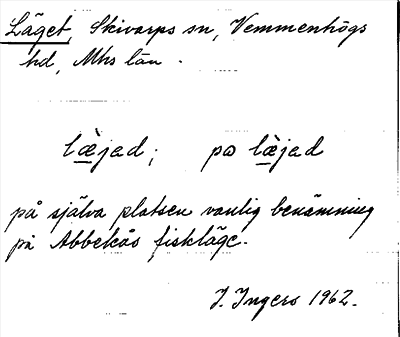 Läget, Skivarps sn, Vemmenhögs
hd, Mhs län.
læ̀jad; po læ̀jad
på själva platsen vanlig benämning
på Abbekås fiskläge.
J. Ingers 1962.